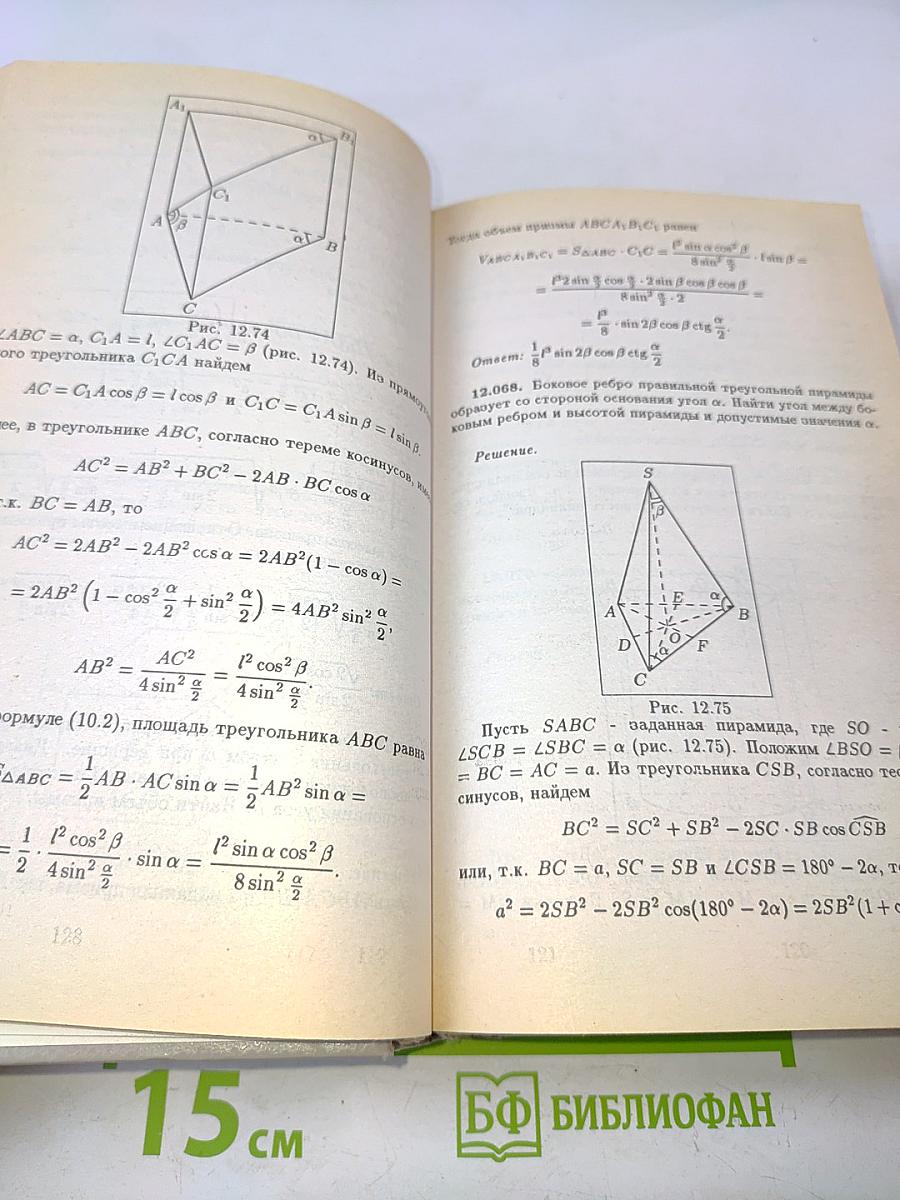 A₁
B₁
α
C₁
A
β
α
B
C
Рис. 12.74
∠ABC = α, C₁A = l, ∠C₁AC = β (рис. 12.74). Из
ого треугольника C₁CA найдем
AC = C₁A cos β = l cos β и C₁C = C₁A sin β = l sin β.
лее, в треугольнике ABC, согласно тереме косинусов,
AC² = AB² + BC² − 2AB · BC cos α
т.к. BC = AB, то
AC² = 2AB² − 2AB² cos α = 2AB²(1 − cos α) =
= 2AB² (1 − cos² α/2 + sin² α/2) = 4AB² sin² α/2,
AB² = AC² / (4 sin² α/2) = l² cos² β / (4 sin² α/2).
ормуле (10.2), площадь треугольника ABC равна
S△ABC = 1/2 AB · AC sin α = 1/2 AB² sin α =
= 1/2 · l² cos² β / (4 sin² α/2) · sin α = l² sin α cos² β / (8 sin² α/2).
128
Тогда объем призмы ABCA₁B₁C₁ равен
V_ABCA₁B₁C₁ = S△ABC · C₁C = l² sin α cos² β / (8 sin² α/2) · l sin β =
= l³ 2 sin α/2 cos α/2 · 2 sin β cos β cos β / (8 sin² α/2 · 2) =
= l³/8 · sin 2β cos β ctg α/2.
Ответ: 1/8 l³ sin 2β cos β ctg α/2
12.068. Боковое ребро правильной треугольной пирамиды
образует со стороной основания угол α. Найти угол между бо-
ковым ребром и высотой пирамиды и допустимые значения α.
Решение.
S
β
A
E
α
B
D
O
F
α
C
Рис. 12.75
Пусть SABC - заданная пирамида, где SO -
∠SCB = ∠SBC = α (рис. 12.75). Положим ∠BSO =
= BC = AC = a. Из треугольника CSB, согласно
синусов, найдем
BC² = SC² + SB² − 2SC · SB cos C͡SB
или, т.к. BC = a, SC = SB и ∠CSB = 180° − 2α,
a² = 2SB² − 2SB² cos(180° − 2α) = 2SB²(1 +
121
15 см
БФ БИБЛИОФАН